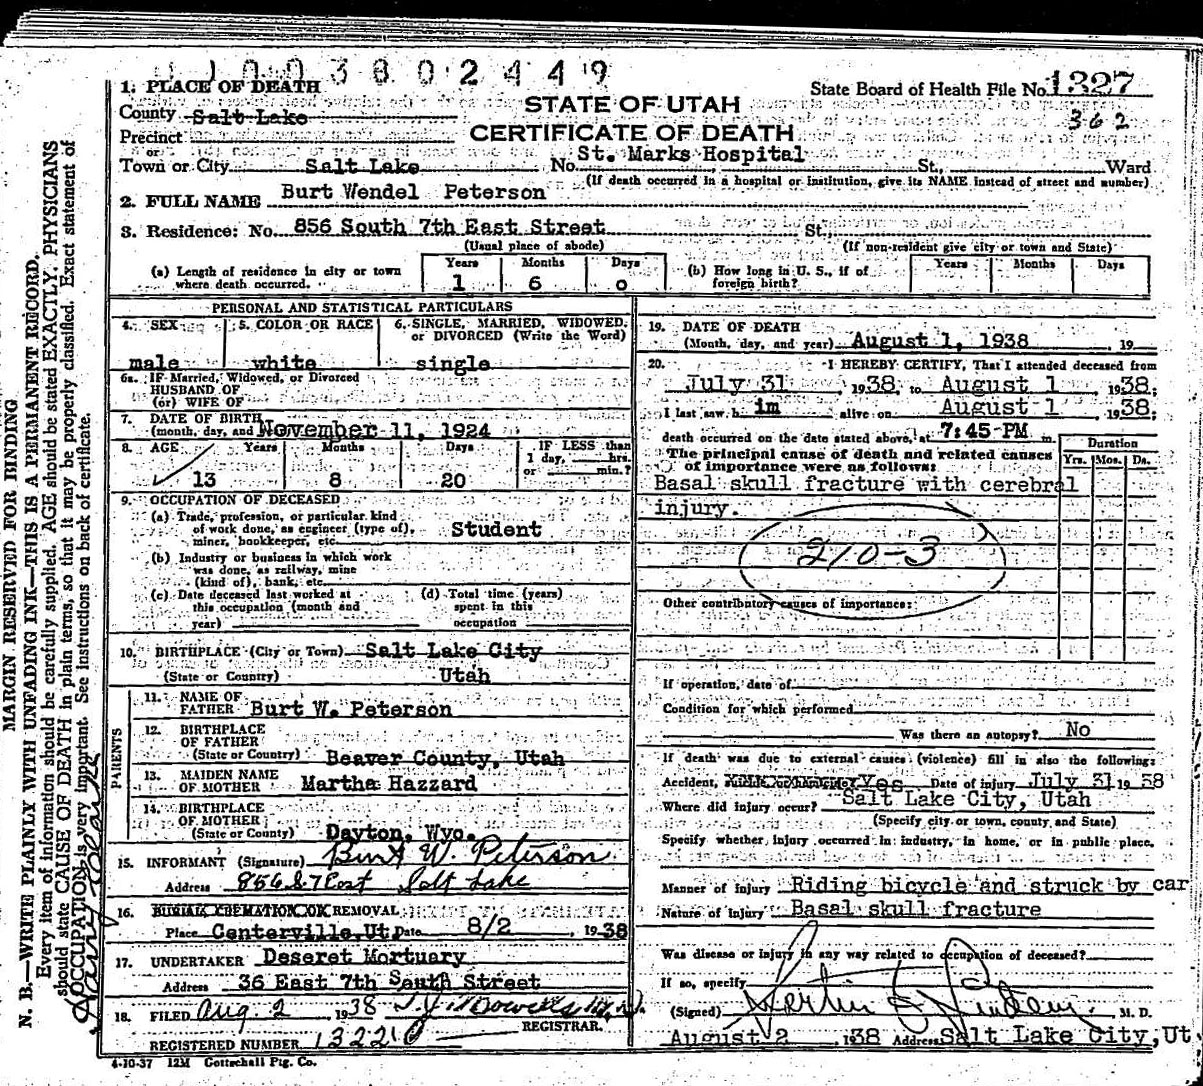 1 0 0 3 8 0 2 4 4 9
1. PLACE OF DEATH
County Salt Lake
Precinct
or
Town or City Salt Lake No. St. Marks Hospital St., Ward
STATE OF UTAH
CERTIFICATE OF DEATH
State Board of Health File No. 1327
362
(If death occurred in a hospital or institution, give its NAME instead of street and number)
2. FULL NAME Burt Wendel Peterson
3. Residence: No. 856 South 7th East Street St.,
(Usual place of abode) (If non-resident give city or town and State)
(a) Length of residence in city or town where death occurred. Years 1 Months 6 Days 0
(b) How long in U. S., if of foreign birth? Years Months Days
PERSONAL AND STATISTICAL PARTICULARS
4. SEX male
5. COLOR OR RACE white
6. SINGLE, MARRIED, WIDOWED, or DIVORCED (Write the Word) single
6a. IF Married, Widowed, or Divorced
HUSBAND OF
(or) WIFE OF
7. DATE OF BIRTH
(month, day, and November 11, 1924
8. AGE Years Months Days IF LESS than
1 day, hrs.
or min.?
13 8 20
9. OCCUPATION OF DECEASED
(a) Trade, profession, or particular kind
of work done, as engineer (type of), Student
miner, bookkeeper, etc.
(b) Industry or business in which work
was done, as railway, mine
(kind of), bank, etc.
(c) Date deceased last worked at
this occupation (month and
year)
(d) Total time (years)
spent in this
occupation
10. BIRTHPLACE (City or Town) Salt Lake City
(State or Country) Utah
PARENTS
11. NAME OF
FATHER Burt W. Peterson
12. BIRTHPLACE
OF FATHER
(State or Country) Beaver County, Utah
13. MAIDEN NAME
OF MOTHER Martha Hazzard
14. BIRTHPLACE
OF MOTHER
(State or Country) Dayton, Wyo.
15. INFORMANT (Signature) Burt W. Peterson
Address 856 S. 7 East Salt Lake
16. BURIAL CREMATION OR REMOVAL
Place Centerville, Ut. Date 8/2 , 1938
17. UNDERTAKER Deseret Mortuary
Address 36 East 7th South Street
18. FILED Aug. 2 1938
REGISTRAR.
REGISTERED NUMBER 13221
4-10-37 12M Gottschall Ptg. Co.
19. DATE OF DEATH
(Month, day, and year) August 1, 1938 , 19
20. I HEREBY CERTIFY, That I attended deceased from
July 31 , 1938, to August 1 , 1938;
I last saw h im alive on August 1 , 1938;
death occurred on the date stated above, at 7:45 PM m.
The principal cause of death and related causes
of importance were as follows:
Duration
Yrs. Mos. Ds.
Basal skull fracture with cerebral
injury.
210-3
Other contributory causes of importance:
If operation, date of
Condition for which performed
Was there an autopsy? No
If death was due to external causes (violence) fill in also the following:
Accident, suicide or homicide? Yes Date of injury July 31 1938
Where did injury occur? Salt Lake City, Utah
(Specify city or town, county, and State)
Specify whether injury occurred in industry, in home, or in public place.
Manner of injury Riding bicycle and struck by car
Nature of injury Basal skull fracture
Was disease or injury in any way related to occupation of deceased?
If so, specify
(Signed) M. D.
August 2 1938 Address Salt Lake City, Ut.
MARGIN RESERVED FOR BINDING
N. B.—WRITE PLAINLY WITH UNFADING INK—THIS IS A PERMANENT RECORD.
Every item of information should be carefully supplied. AGE should be stated EXACTLY. PHYSICIANS
should state CAUSE OF DEATH in plain terms, so that it may be properly classified. Exact statement of
OCCUPATION is very important. See instructions on back of certificate.